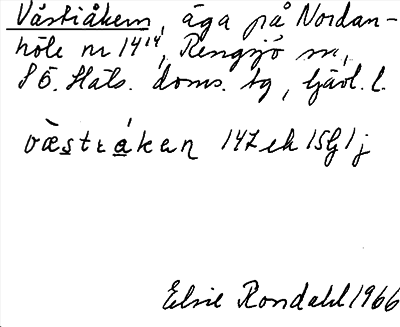 Västiåkern, äga på Nordan-
höle nr 14¹⁴, Rengsjö sn,
SÖ. Häls. doms. tg, Gävl. l.
vὲstɩákan 147 ek 15G1j
Elsie Rondahl 1966